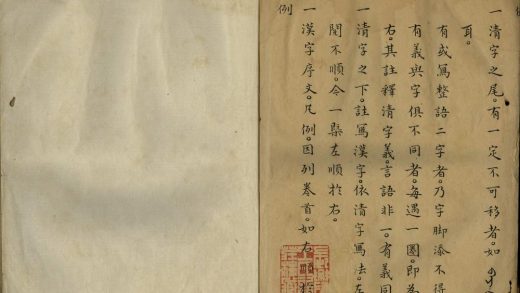 一清字之尾。有一定不可移者。如
耳。
有或寫整語二字者。乃字脚添不得
有義與字俱不同者。每遇一圈。即為
右。其註釋清字義。言語非一。有義同
一清字之下。註寫漢字。依清字寫法。左
閱不順。今一槩左順於右。
一漢字序文。凡例。因列卷首。如右順
例